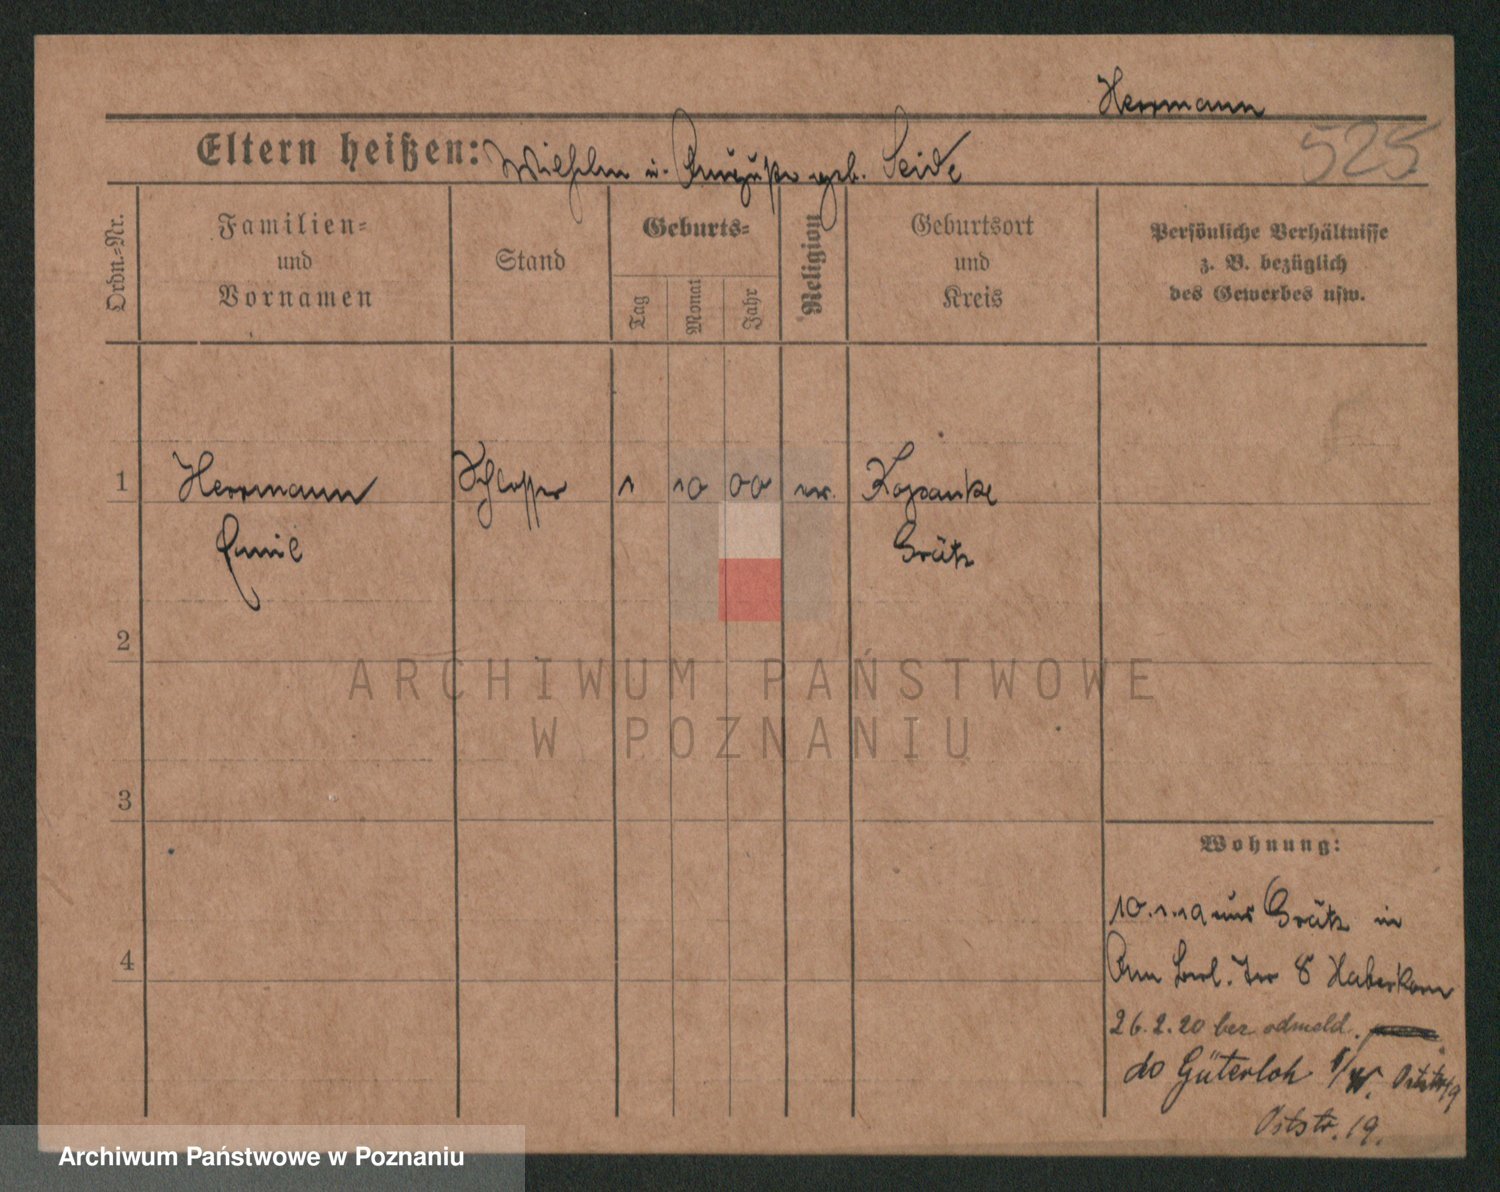 Herrmann
525
Eltern heißen: Wilhelm u. Auguste geb. Seide
Ordn.-Nr.
Familien-
und
Vornamen
Stand
Geburts-
Tag
Monat
Jahr
Religion
Geburtsort
und
Kreis
Persönliche Verhältnisse
z. B. bezüglich
des Gewerbes usw.
1
Herrmann Schlosser 1 10 00 ev. Kopanke
Emil Grätz
2
3
4
ARCHIWUM PAŃSTWOWE
W POZNANIU
Wohnung:
10.1.19 aus Grätz in
Am 8 Haberkorn
26.2.20 bez odmeld.
do Güterloh
19.
Archiwum Państwowe w Poznaniu